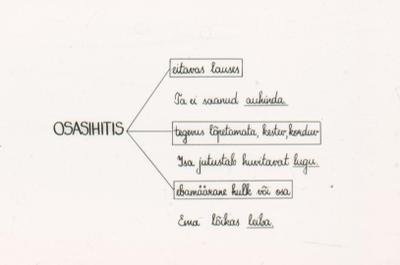 eitavas lauses
Ta ei saanud auhinda.
OSASIHITIS
tegevus lõpetamata, kestev, korduv
Isa jutustab huvitavat lugu.
ebamäärane hulk või osa
Ema lõikas leiba.